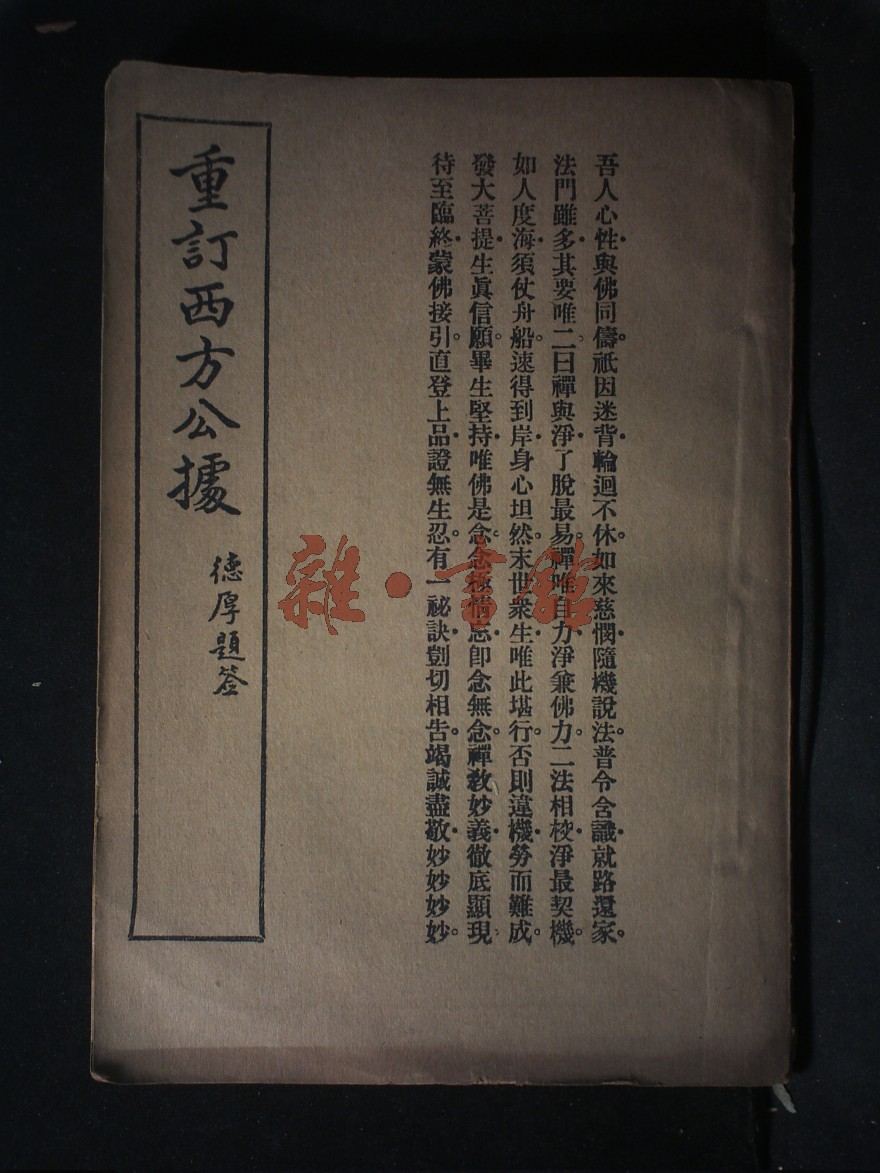 吾人心性與佛同儔祇因迷背輪迴不休如來慈憫隨機說法普令含識就路還家
法門雖多其要唯二曰禪與淨了脫最易禪唯自力淨兼佛力二法相校淨最契機
如人度海須仗舟船速得到岸身心坦然末世衆生唯此堪行否則違機勞而難成
發大菩提生眞信願畢生堅持唯佛是念念極情忘卽念無念禪教妙義徹底顯現
待至臨終蒙佛接引直登上品證無生忍有一祕訣剴切相告竭誠盡敬妙妙妙妙
重訂西方公據
德厚題签
雜·書館